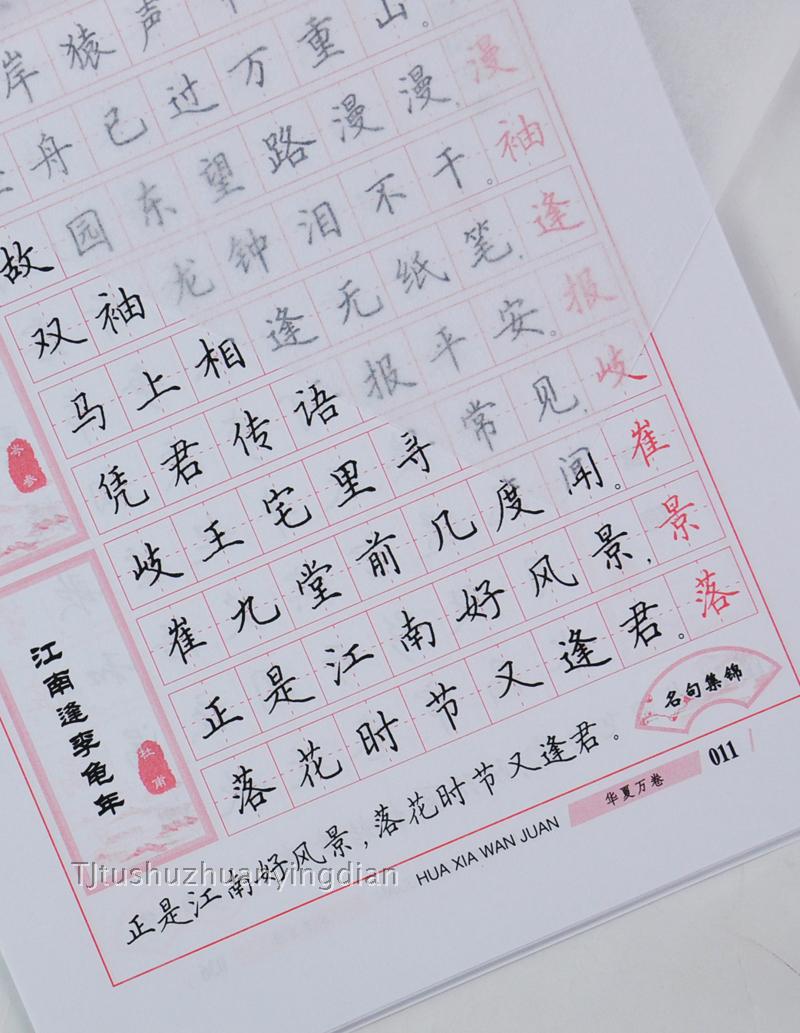 岸猿声
山。
舟已过万重
故园东望路漫漫，漫
双袖龙钟泪不干。袖
马上相逢无纸笔，逢
凭君传语报平安。报
岐王宅里寻常见，岐
崔九堂前几度闻。崔
正是江南好风景，景
落花时节又逢君。落
岑参
江南逢李龟年
杜甫
名句集锦
正是江南好风景，落花时节又逢君。
HUA XIA WAN JUAN
华夏万卷
011
TJtushuzhuanyingdian